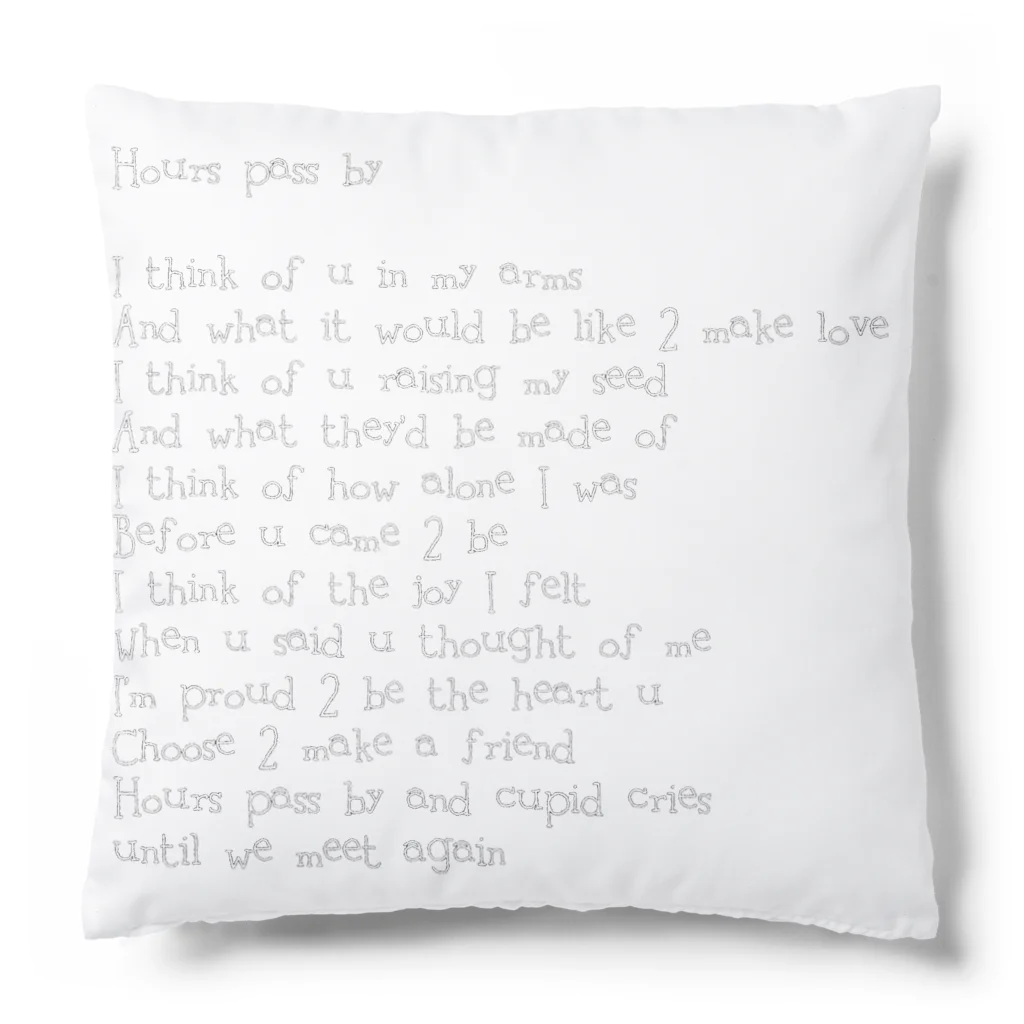 Hours pass by

I think of u in my arms
And what it would be like 2 make love
I think of u raising my seed
And what they'd be made of
I think of how alone I was
Before u came 2 be
I think of the joy I felt
When u said u thought of me
I'm proud 2 be the heart u
Choose 2 make a friend
Hours pass by and cupid cries
until we meet again